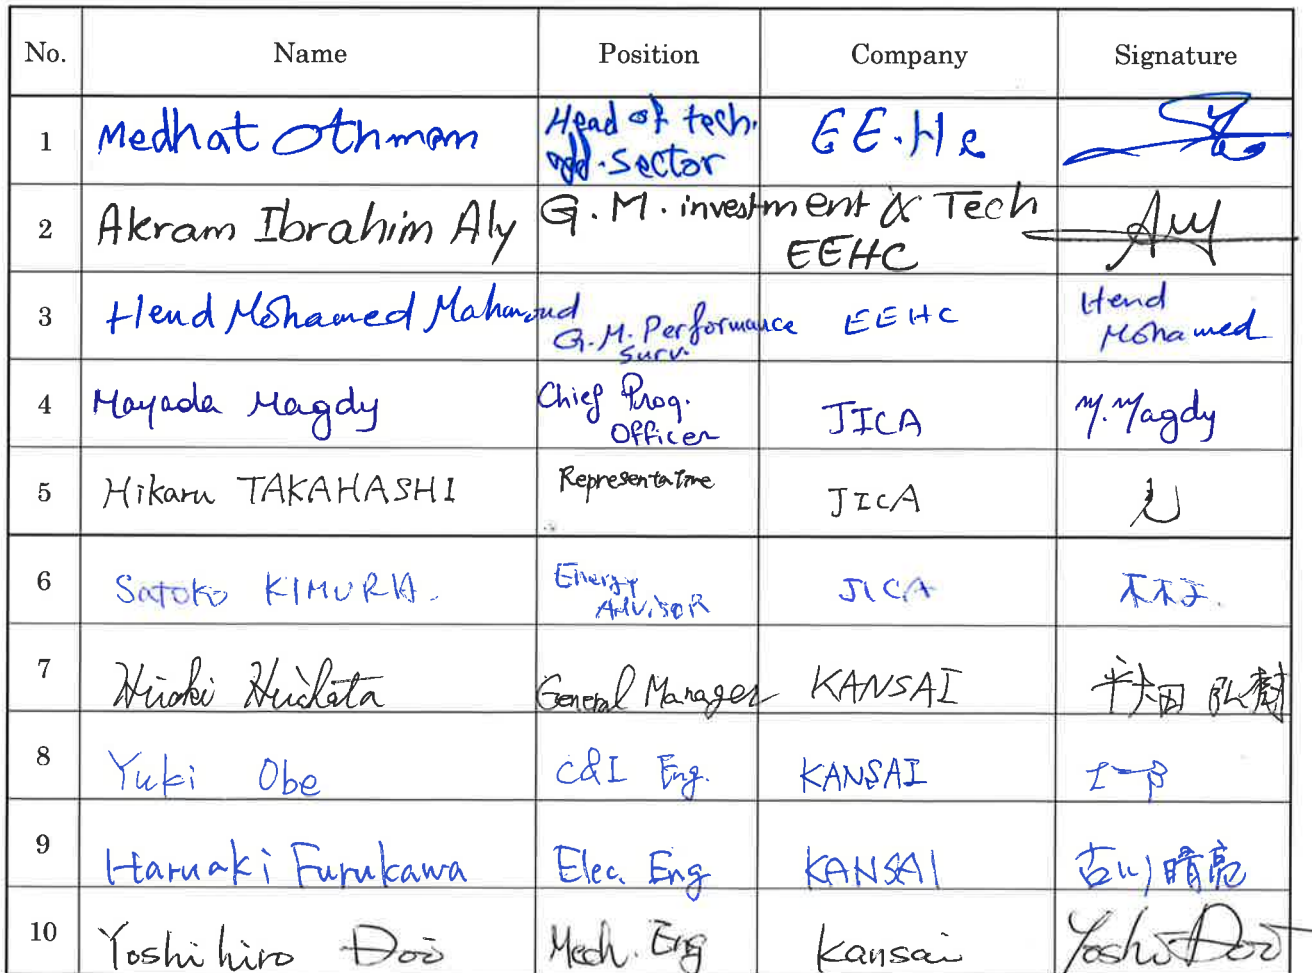 No. Name Position Company Signature
1 Medhat Othman Head of tech. EE.He
add. Sector
2 Akram Ibrahim Aly G.M. investment & Tech Aly
EEHC
3 Hend Mohamed Mahmoud G.M. Performance EEHC Hend
Surv. Mohamed
4 Mayada Magdy Chief Prog. JICA M. Magdy
Officer
5 Hikaru TAKAHASHI Representative JICA
6 Satoko KIMURA. Energy JICA
ADVISOR
7 General Manager KANSAI 半田 弘樹
8 Yuki Obe C&I Eng. KANSAI
9 Haruaki Furukawa Elec. Eng KANSAI 古川晴亮
10 Yoshihiro Doi Mech. Eng Kansai Yoshi Doi